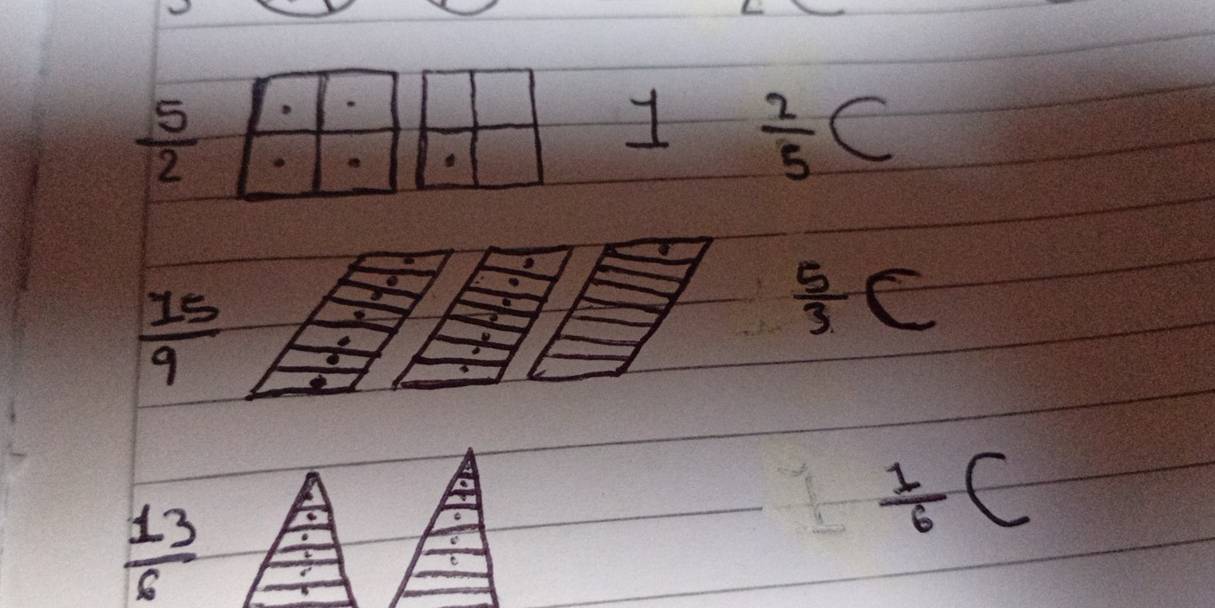 5/2 1 2/5 C
15/9 5/3 C
13/6 1 1/6 C